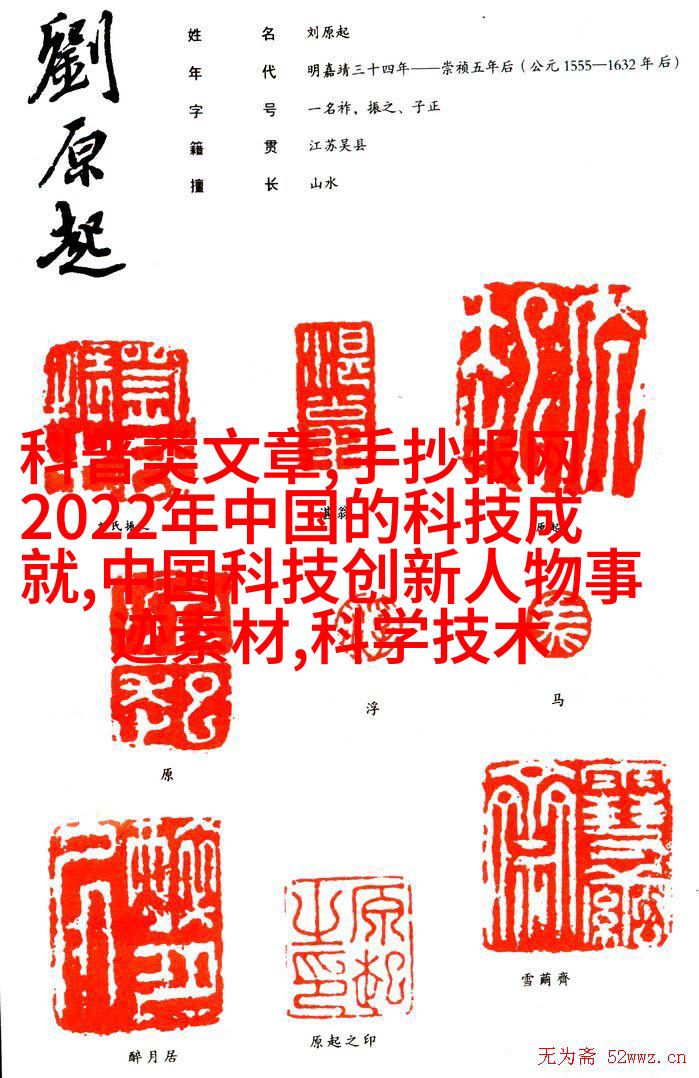 劉原起
姓 名 刘原起
年 代 明嘉靖三十四年——崇祯五年后（公元1555—1632年后）
字 号 一名祚，振之、子正
籍 贯 江苏吴县
擅 长 山水
科普类文章,手抄报网,
2022年中国的科技成
就,中国科技创新人物事
迹素材,科学技术
原起
浮
马
原
雪繭齊
原起之印
原起之印
醉月居
无为斋 52wwz.cn